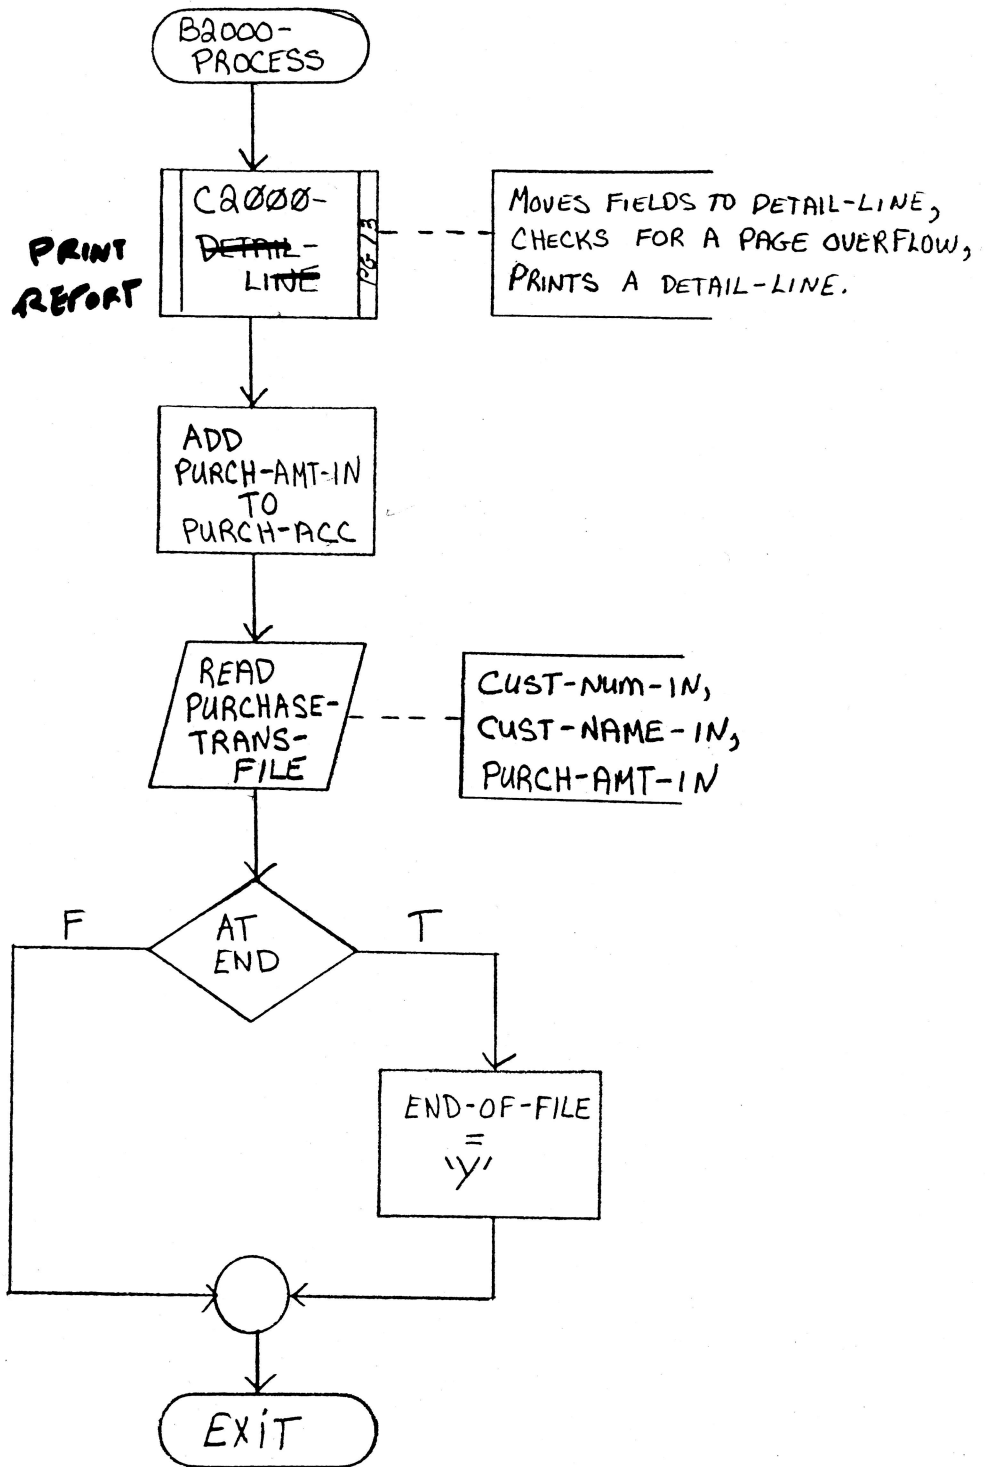 B2000-
PROCESS
PRINT
REPORT
C2000-
DETAIL-
LINE
PG 13
MOVES FIELDS TO DETAIL-LINE,
CHECKS FOR A PAGE OVERFLOW,
PRINTS A DETAIL-LINE.
ADD
PURCH-AMT-IN
TO
PURCH-ACC
READ
PURCHASE-
TRANS-
FILE
CUST-NUM-IN,
CUST-NAME-IN,
PURCH-AMT-IN
F
AT
END
T
END-OF-FILE
=
'Y'
EXiT